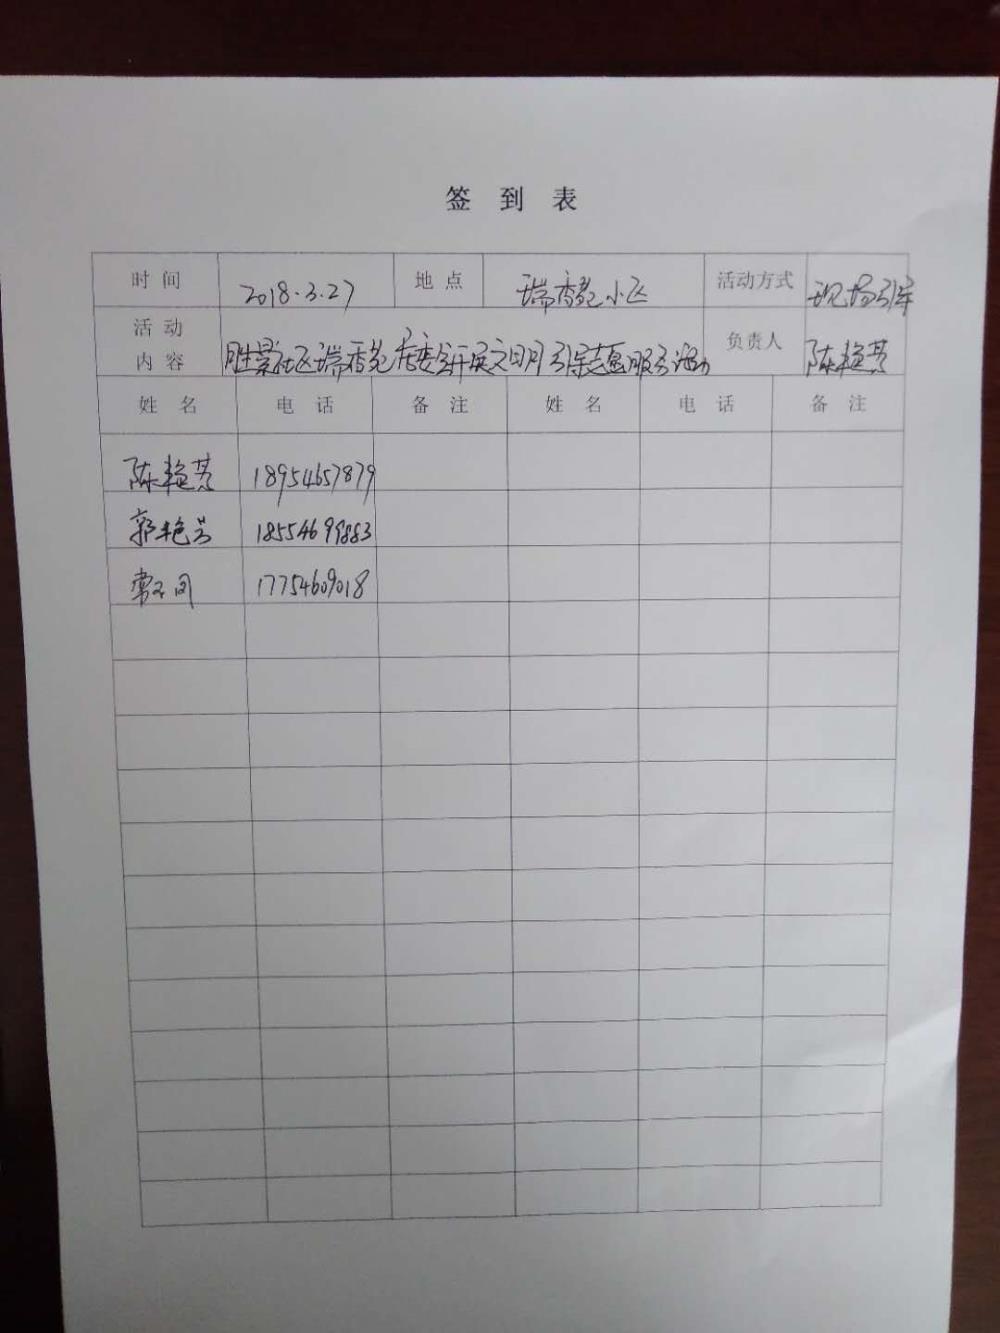 签到表
时间 2018.3.27 地点 瑞香苑小区 活动方式 现场引导
活动内容 胜景社区瑞香苑居委会开展文明引导志愿服务活动 负责人 陈艳芳
姓名 电话 备注 姓名 电话 备注
陈艳芳 18954657879
郭艳芳 18554699883
17754609018